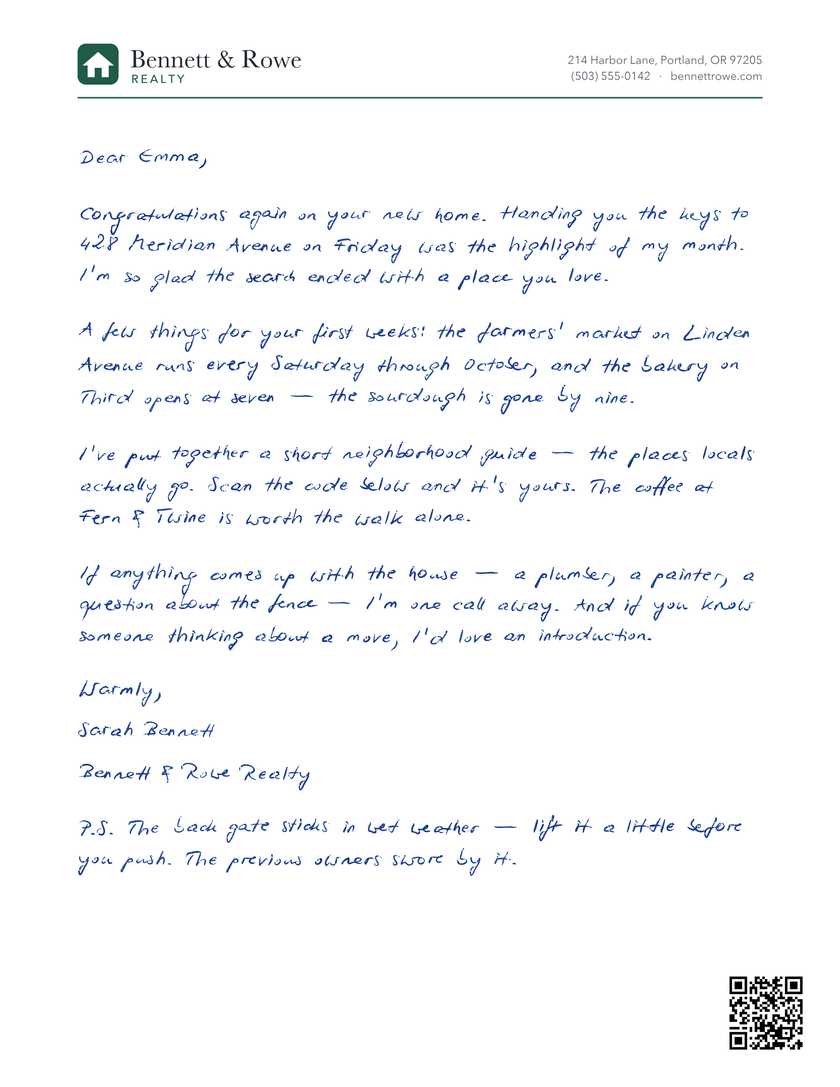 Bennett & Rowe
REALTY
214 Harbor Lane, Portland, OR 97205
(503) 555-0142 · bennettrowe.com
Dear Emma,
Congratulations again on your new home. Handing you the keys to
428 Meridian Avenue on Friday was the highlight of my month.
I'm so glad the search ended with a place you love.
A few things for your first weeks: the farmers' market on Linden
Avenue runs every Saturday through October, and the bakery on
Third opens at seven — the sourdough is gone by nine.
I've put together a short neighborhood guide — the places locals
actually go. Scan the code below and it's yours. The coffee at
Fern & Twine is worth the walk alone.
If anything comes up with the house — a plumber, a painter, a
question about the fence — I'm one call away. And if you know
someone thinking about a move, I'd love an introduction.
Warmly,
Sarah Bennett
Bennett & Rowe Realty
P.S. The back gate sticks in wet weather — lift it a little before
you push. The previous owners swore by it.